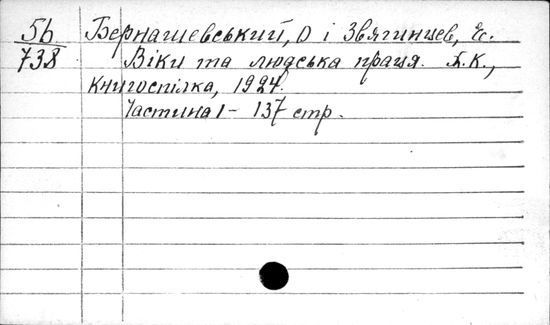 5b Бернашевський, О і Звягинцев, Є.
738 Віки та людська праця. К.,
Книгоспілка, 1924.
Частина I - 137 стр.